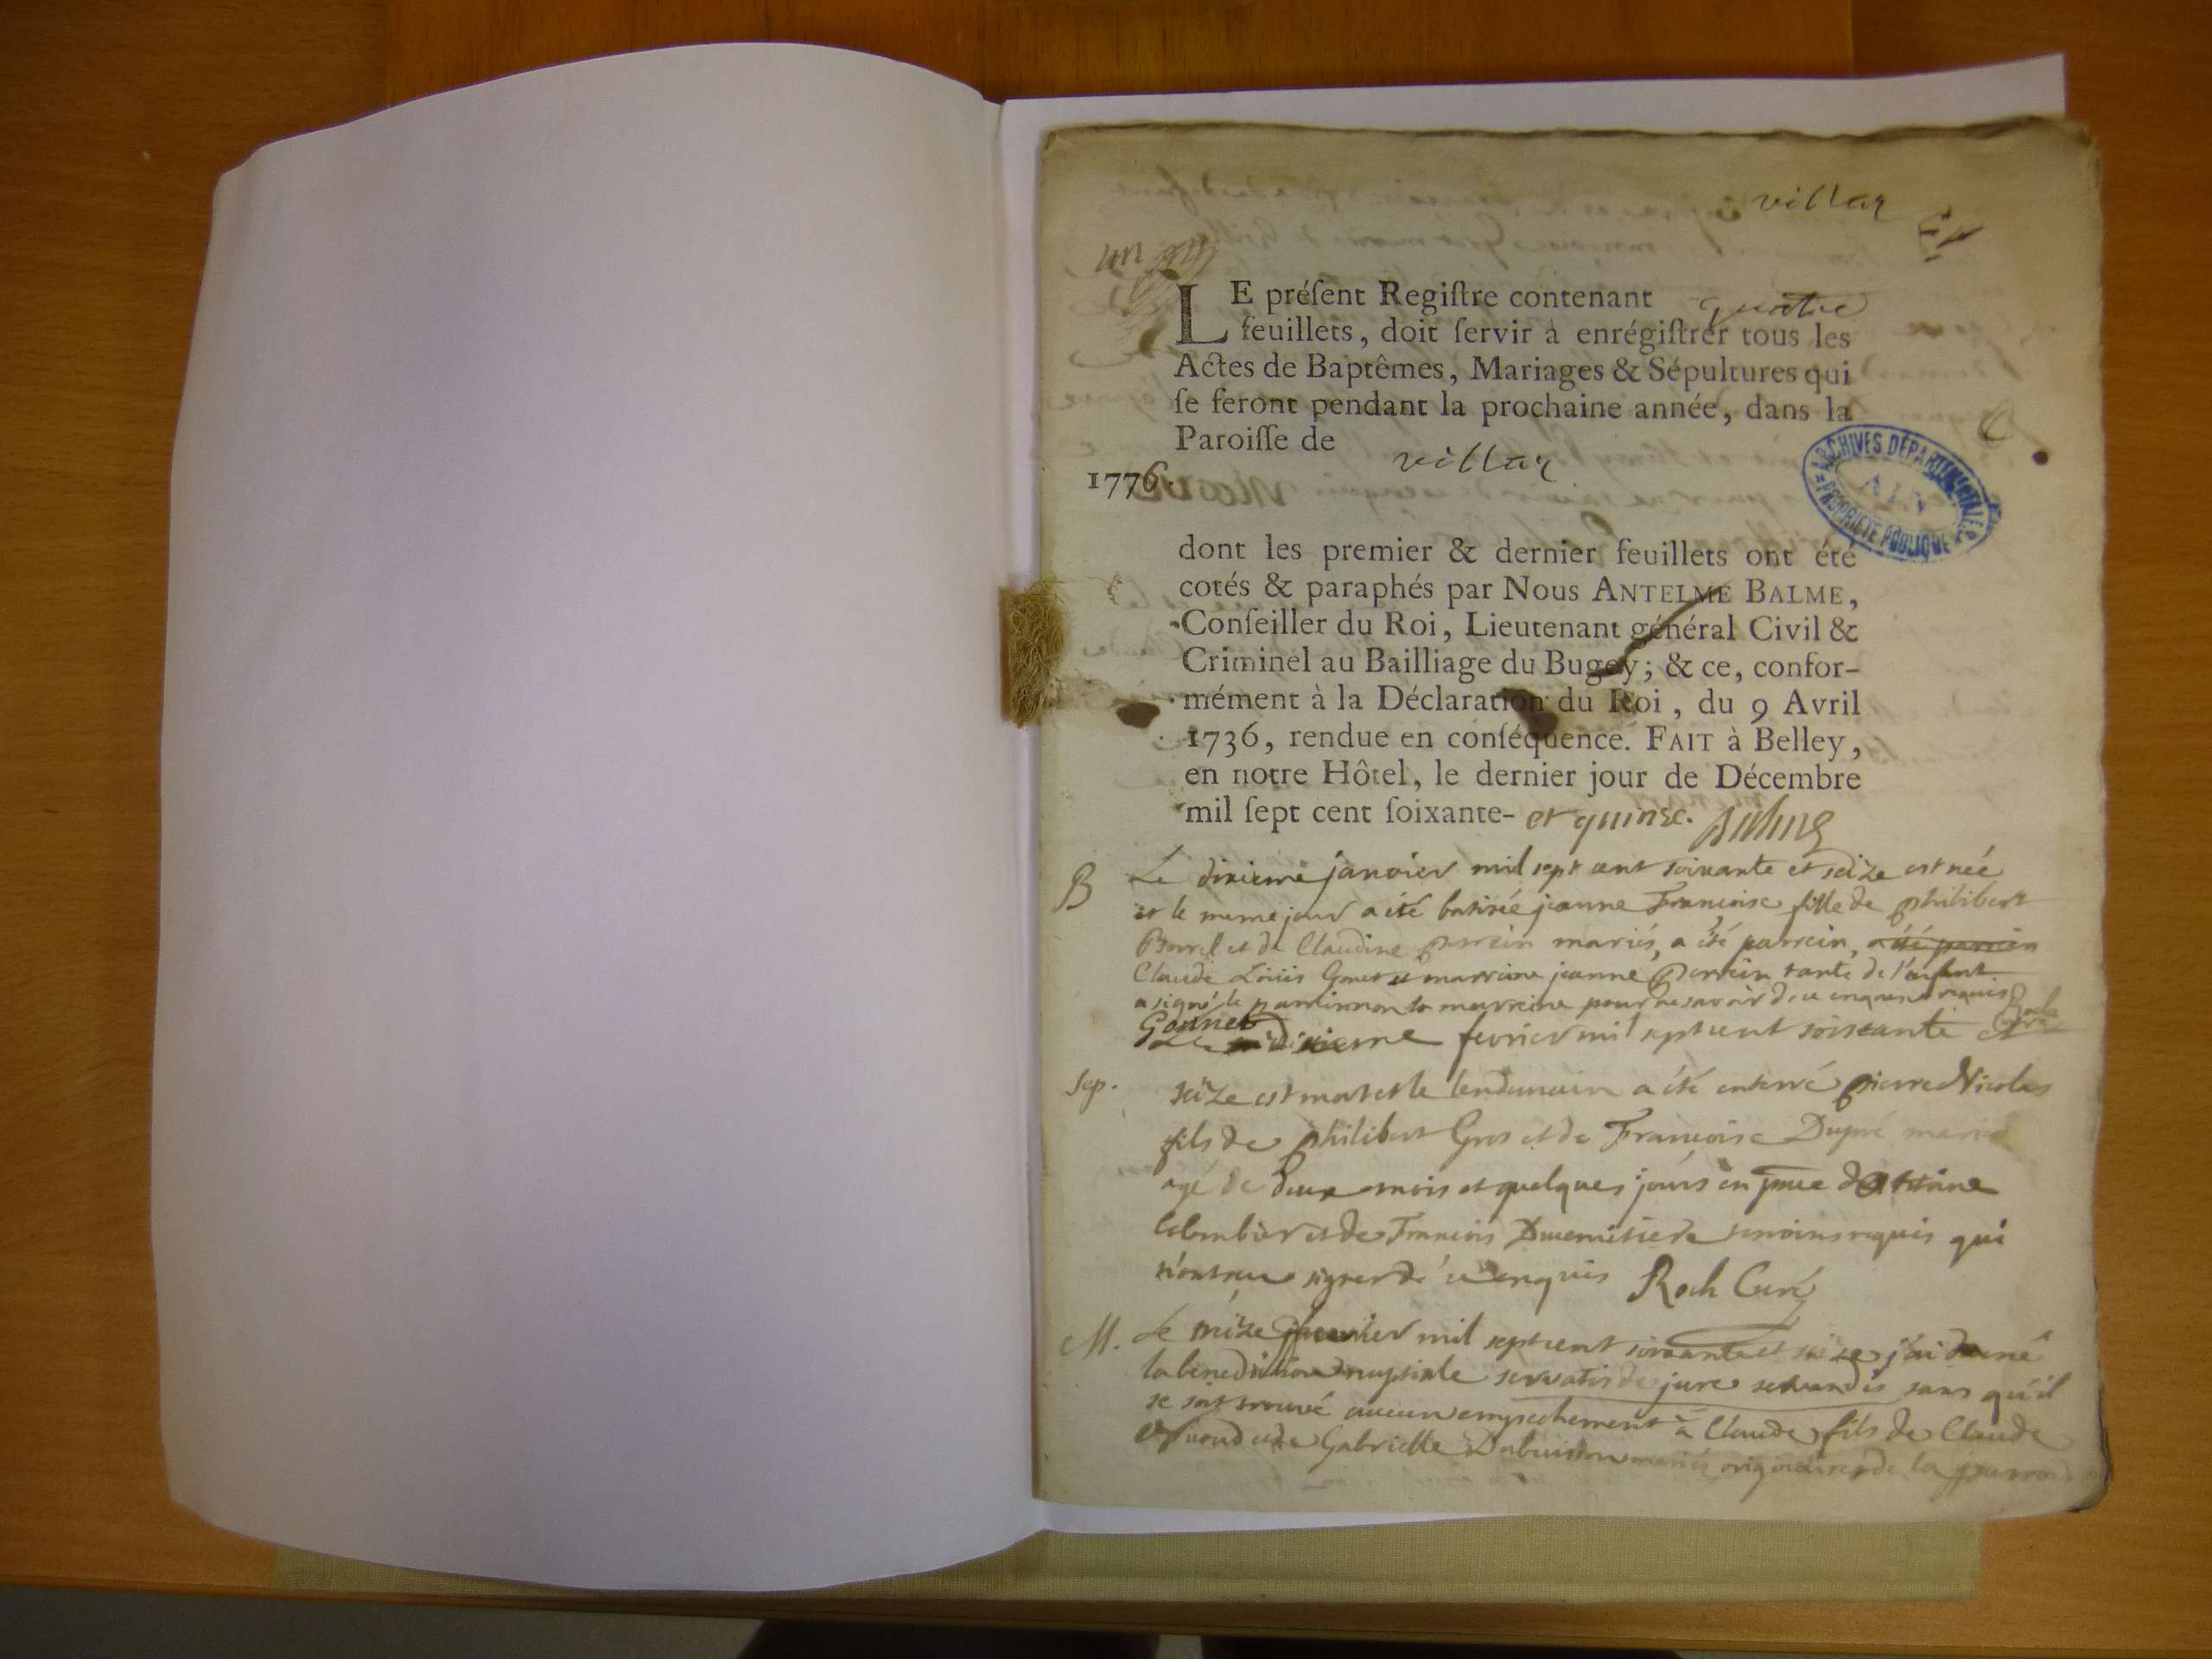 villar
un
LE préſent Regiſtre contenant quatre
feuillets, doit ſervir à enrégiſtrer tous les
Actes de Baptêmes, Mariages & Sépultures qui
ſe feront pendant la prochaine année, dans la
Paroiſſe de villar
1776.
ARCHIVES DÉPARTEMENTALES
AIN
PROPRIÉTÉ PUBLIQUE
dont les premier & dernier feuillets ont été
cotés & paraphés par Nous ANTELME BALME,
Conſeiller du Roi, Lieutenant général Civil &
Criminel au Bailliage du Bugey; & ce, confor-
mément à la Déclaration du Roi, du 9 Avril
1736, rendue en conſéquence. FAIT à Belley,
en notre Hôtel, le dernier jour de Décembre
mil ſept cent ſoixante- et quinze. Balme
B Le dixieme janvier mil sept cent soixante et seize est née
et le meme jour a été batisée jeanne Françoise fille de philibert
Borrel et de Claudine perrein mariés, a été parrein, a été parrein
Claude Louis Gonet et marreine jeanne perrein tante de l'enfant
a signé le parrein non la marreine pour ne savoir de ce enquis et requis
Gonnet Roch curé
Le dixieme fevrier mil sept cent soixante et
Sep. seize est mort et le lendemain a été enterré pierre Nicolas
fils de philibert Gros et de Françoise Dupré mariés
agé de deux mois et quelques jours en prèsence d'Antoine
Colombier et de François Dumetiere temoins requis qui
n'ont su signer de ce enquis Roch Curé
M. Le treize janvier mil sept cent soixante et seize j'ai donné
la benediction nuptiale servatis de jure servandis sans qu'il
se soit trouvé aucun empechement à Claude fils de Claude
et de Gabrielle Dubuisson mariés originaires de la